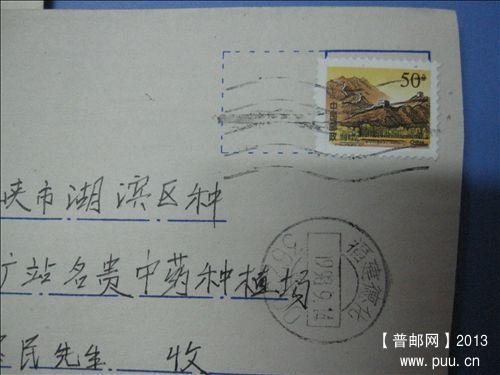 50分
中国邮政
峡市湖滨区种
广站名贵中药种植场
民先生 收
福建德化
1998.9.14
【普邮网】2013
www.puu.cn